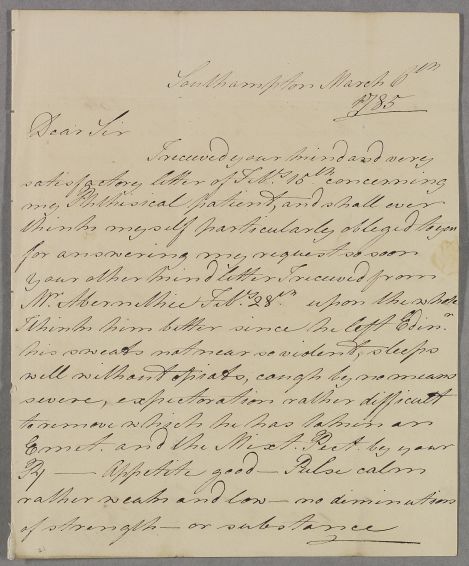 Southampton March 6th
1785
Dear Sir
I received your kind and very
satisfactory letter of Feby. 10th concerning
my Phthisical patient, and shall ever
think myself particularly obliged to you
for answering my request so soon
your other kind letter I received from
Mr Abernethie Feby. 28th upon the whole
I think him better since he left Edinr
his sweats not near so violent, sleeps
well without opiats, cough by no means
severe, expectoration rather difficult
to remove which he has taken an
Emet. and the Mixt. Pect. by your
R — Appetite good — Pulse calm
rather weak and low — no diminution
of strength — or substance